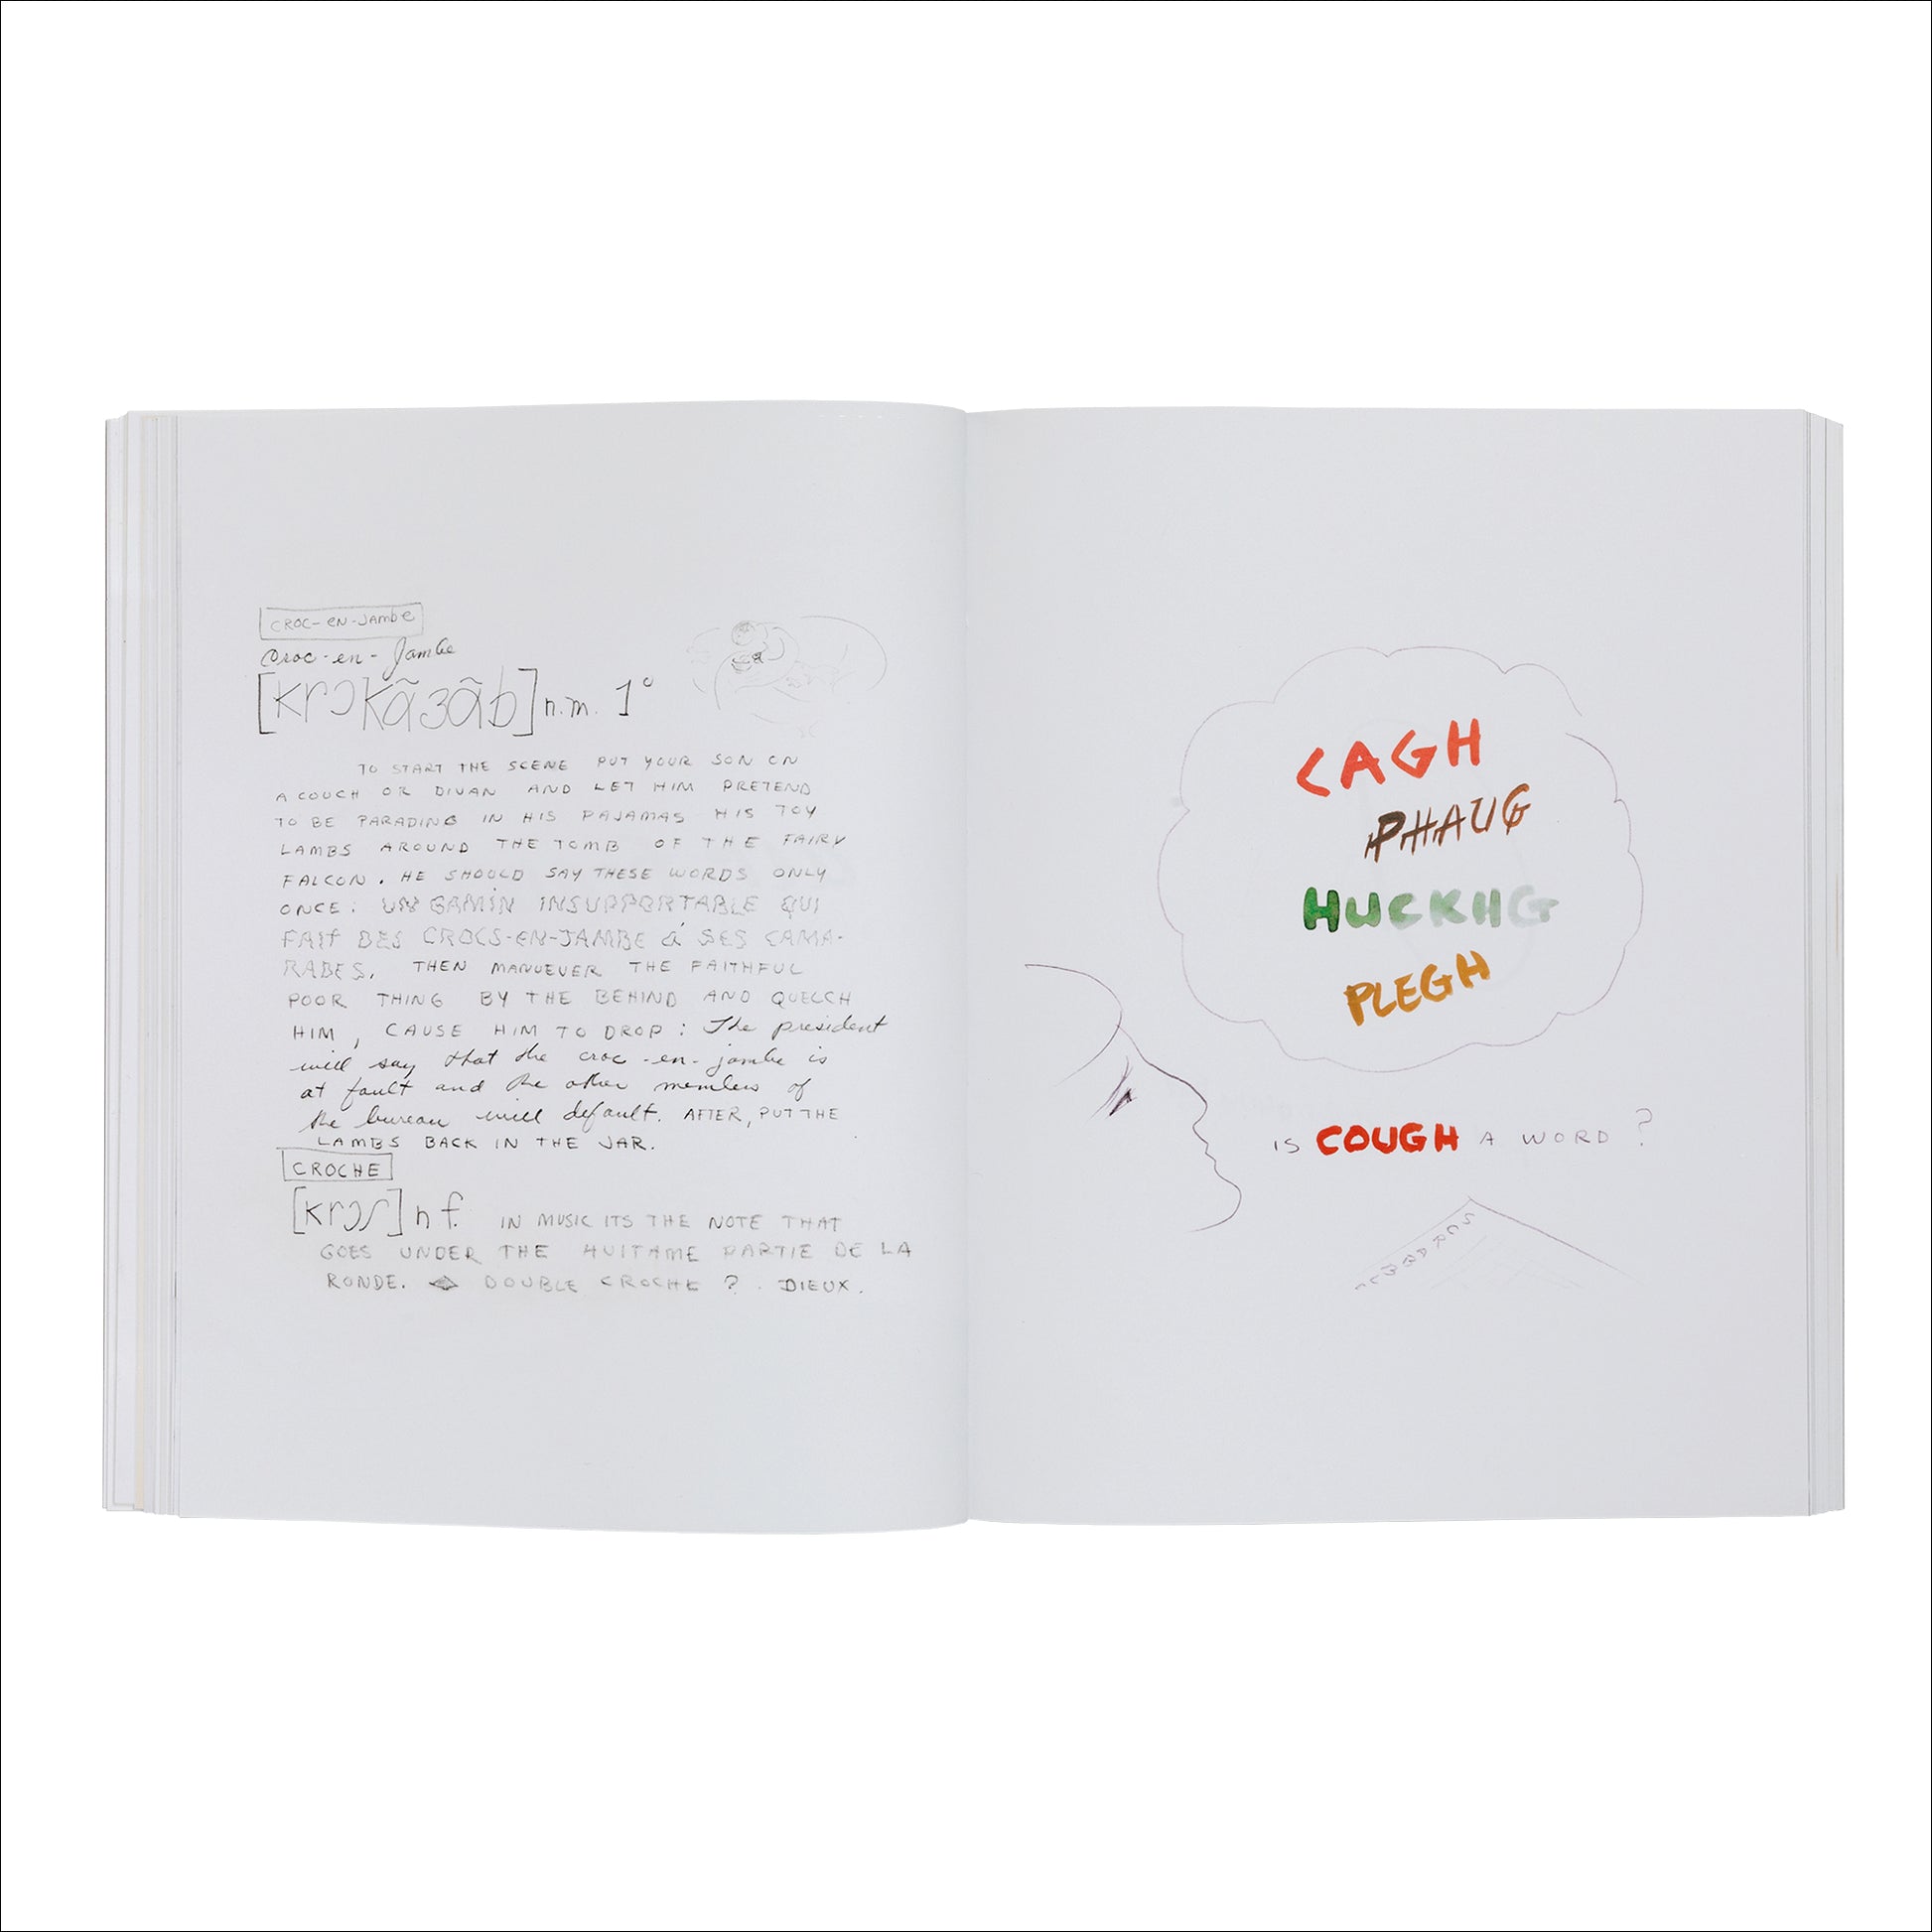 CROC-EN-JAMBE
Croc-en-Jambe
[krɔkãʒãb] n.m. 1°
TO START THE SCENE PUT YOUR SON ON
A COUCH OR DIVAN AND LET HIM PRETEND
TO BE PARADING IN HIS PAJAMAS HIS TOY
LAMBS AROUND THE TOMB OF THE FAIRY
FALCON. HE SHOULD SAY THESE WORDS ONLY
ONCE: UN GAMIN INSUPPORTABLE QUI
FAIT DES CROCS-EN-JAMBE À SES CAMA-
RADES. THEN MANUEVER THE FAITHFUL
POOR THING BY THE BEHIND AND QUELCH
HIM, CAUSE HIM TO DROP: The president
will say that the croc-en-jambe is
at fault and the other members of
the bureau will default. AFTER, PUT THE
LAMBS BACK IN THE JAR.
CROCHE
[krɔʃ] n f. IN MUSIC ITS THE NOTE THAT
GOES UNDER THE HUITHME PARTIE DE LA
RONDE. DOUBLE CROCHE ? . DIEUX.
CAGH
PHAUG
HUCKHG
PLEGH
IS COUGH A WORD ?